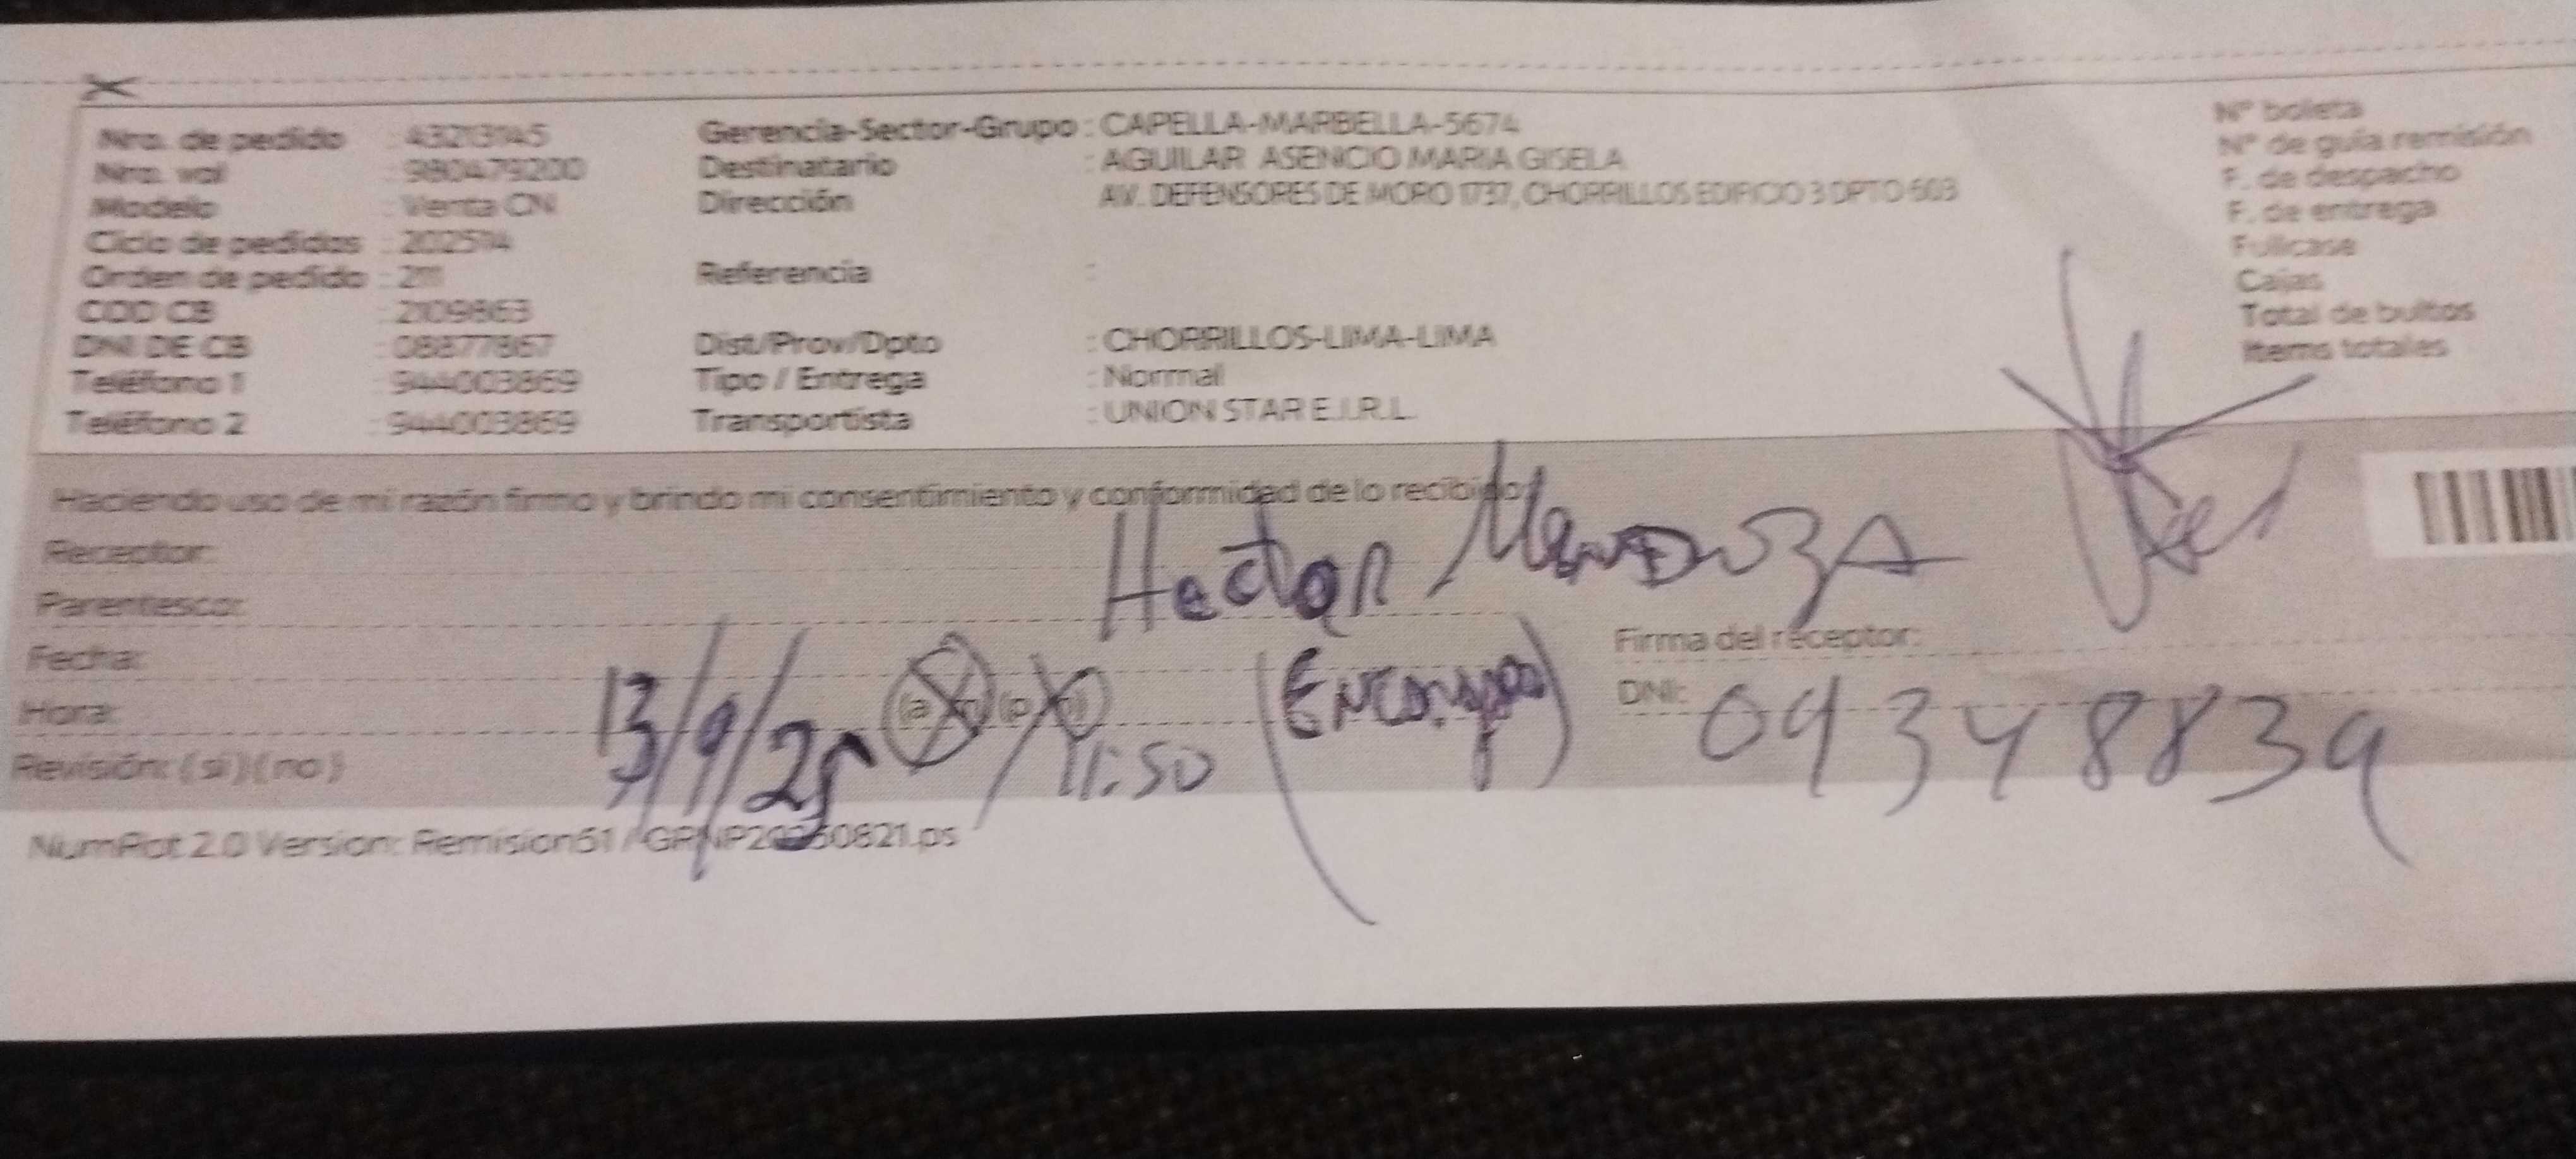 Nro. de pedido : 43213145
Nro. val : 980479200
Modelo : Venta CN
Ciclo de pedidos : 202514
Orden de pedido : 211
COD CB : 2109863
DNI DE CB : 08877867
Teléfono 1 : 944003869
Teléfono 2 : 944003869
Gerencia-Sector-Grupo : CAPELLA-MARBELLA-5674
Destinatario : AGUILAR ASENCIO MARIA GISELA
Dirección AV. DEFENSORES DE MORO 1737, CHORRILLOS EDIFICIO 3 DPTO 603
Referencia :
Dist/Prov/Dpto : CHORRILLOS-LIMA-LIMA
Tipo / Entrega : Normal
Transportista : UNION STAR E.I.R.L.
N° boleta
N° de guía remisión
F. de despacho
F. de entrega
Fullcase
Cajas
Total de bultos
Items totales
Haciendo uso de mi razón firmo y brindo mi consentimiento y conformidad de lo recibido:
Receptor: Hector Mendoza
Parentesco:
Fecha: 13/9/25
Hora: 11:50
Revisión: (si) (no)
Firma del receptor:
DNI: 09348839
NumRot 2.0 Version: Remision61 / GRNP20250821.ps